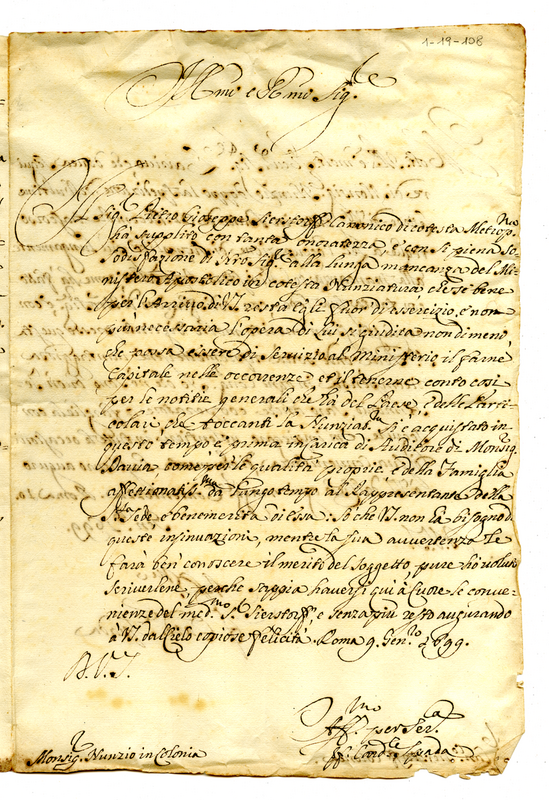 1-19-108
Ill.mo e R.mo Sig.re
Il Sig.r Pietro Gioseppe Sierstorff Canonico di cotesta Metrop.na
hà supplito con tanta onoratezza, e con sì piena So-
disfazione di N.ro Sig.re alla lunga mancanza del Mi-
nistero Apostolico in cotesta Nunziatura che se bene
per l'Arrivo di V.S. resta egli fuor di essercizio, e non
più necessaria l'opera di lui si giudica nondimeno,
che possa essere di servizio al Ministerio il farne
Capitale nelle occorrenze et il tenerne conto così
per le notitie generali che hà del Paese, e delle Parti-
colari che toccanti la Nunziat.ra si è acquistato in
questo tempo e prima in carica di Auditore di Monsig.r
Davia come per le qualità proprie, e della Famiglia
affettionatiss.ma da lungo tempo alli Rappresentanti della
S.ta Sede e benemerita di essa: Sò che V.S. non hà bisogno di
queste insinuazioni, mentre la sua avvertenza Le
farà ben conoscere il merito del soggetto, pure hò voluto
scriverlene, perche sappia haversi quì à Cuore le conve-
nienze del med.mo S.r Sierstorff, e senza più resto augurando
à V.S. dal Cielo copiose felicità. Roma 9. Gen.ro 1699.
D. V. S.
Aff.mo per Ser.la
F. Card.le Spada
Monsig.r Nunzio in Colonia